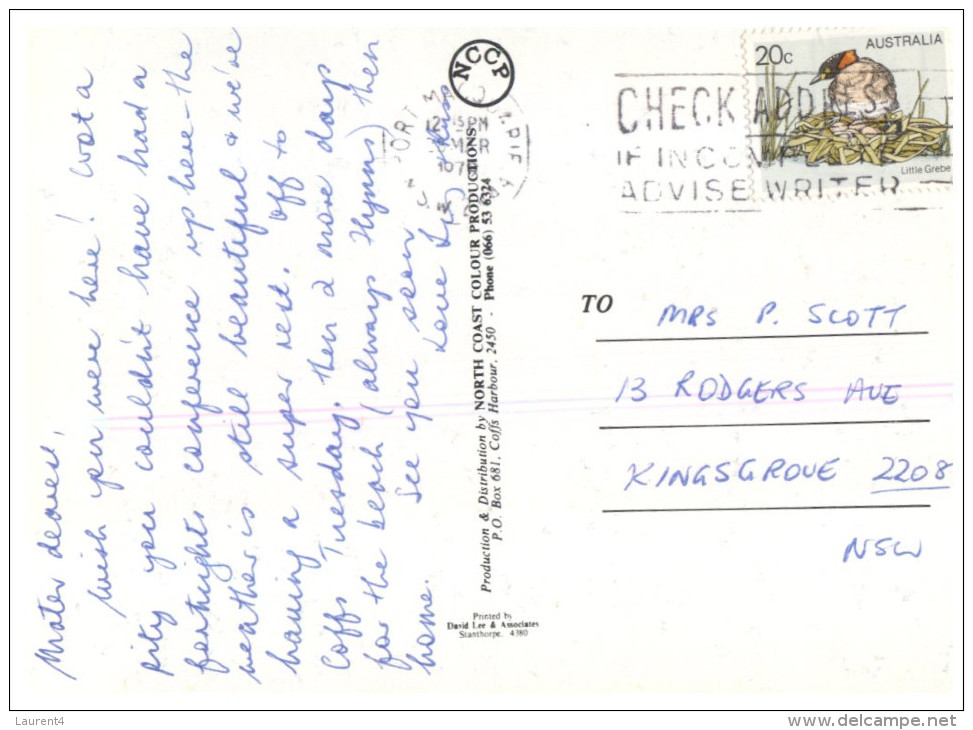 Mater dearest,
Wish you were here! Wot a
pity you couldn't have had a
fortnights conference up here - the
weather is still beautiful & we've
having a super rest. Off to
Coffs Tuesday. Then 2 more days
for the beach (always Hymns) then
home. See you soon
Love
NCCP
Production & Distribution by NORTH COAST COLOUR PRODUCTIONS
P.O. Box 681, Coffs Harbour, 2450 - Phone (066) 53 6324
Printed by
David Lee & Associates
Stanthorpe. 4380
PORT MACQ
PM
197
20c
AUSTRALIA
Little Grebe
CHECK ADDRESS
IF INCOR
ADVISE WRITER
TO
MRS P. SCOTT
13 RODGERS AVE
KINGSGROVE 2208
NSW
Laurent4
www.delcampe.net